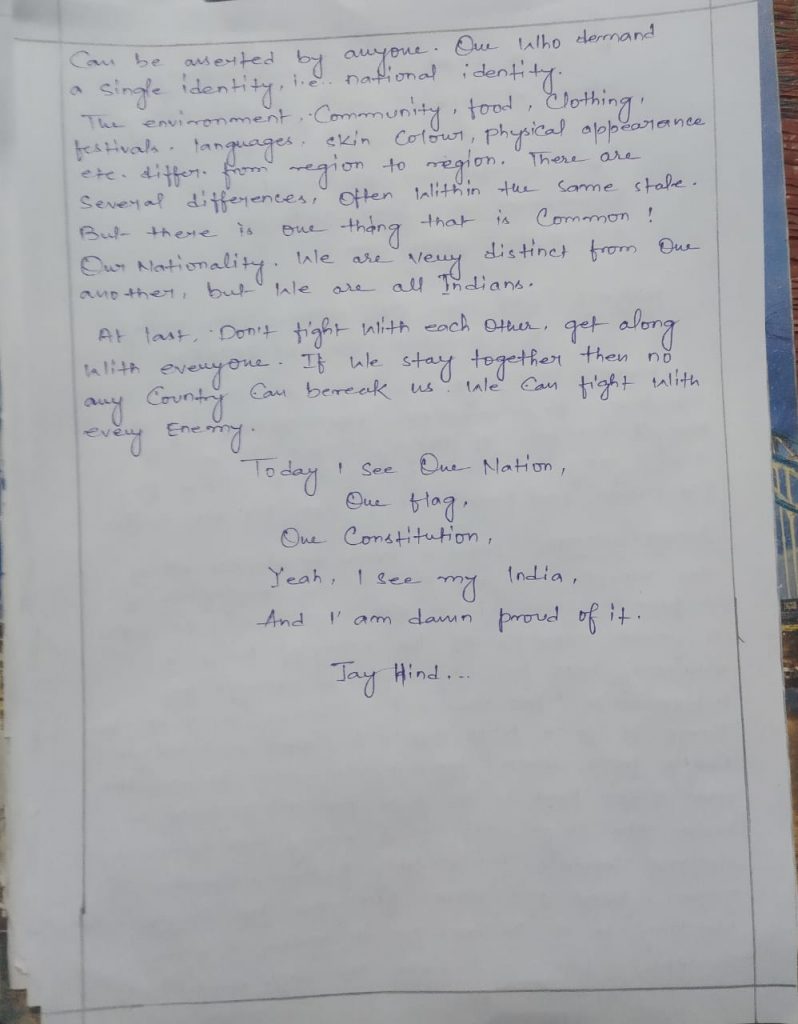 Can be asserted by anyone. One who demand
a single identity, i.e.. national identity.
The environment, Community, food, Clothing,
festivals, languages, skin Colour, physical appearance
etc. differ. from region to region. There are
Several differences, Often within the same state.
But there is one thing that is Common!
Our Nationality. We are very distinct from One
another, but We are all Indians.
At last, Don't fight with each Other, get along
with everyone. If We stay together then no
any Country Can bereak us. We Can fight with
every Enemy.
Today I see One Nation,
One flag,
One Constitution,
Yeah, I see my India,
And I' am damn proud of it.
Jay Hind...